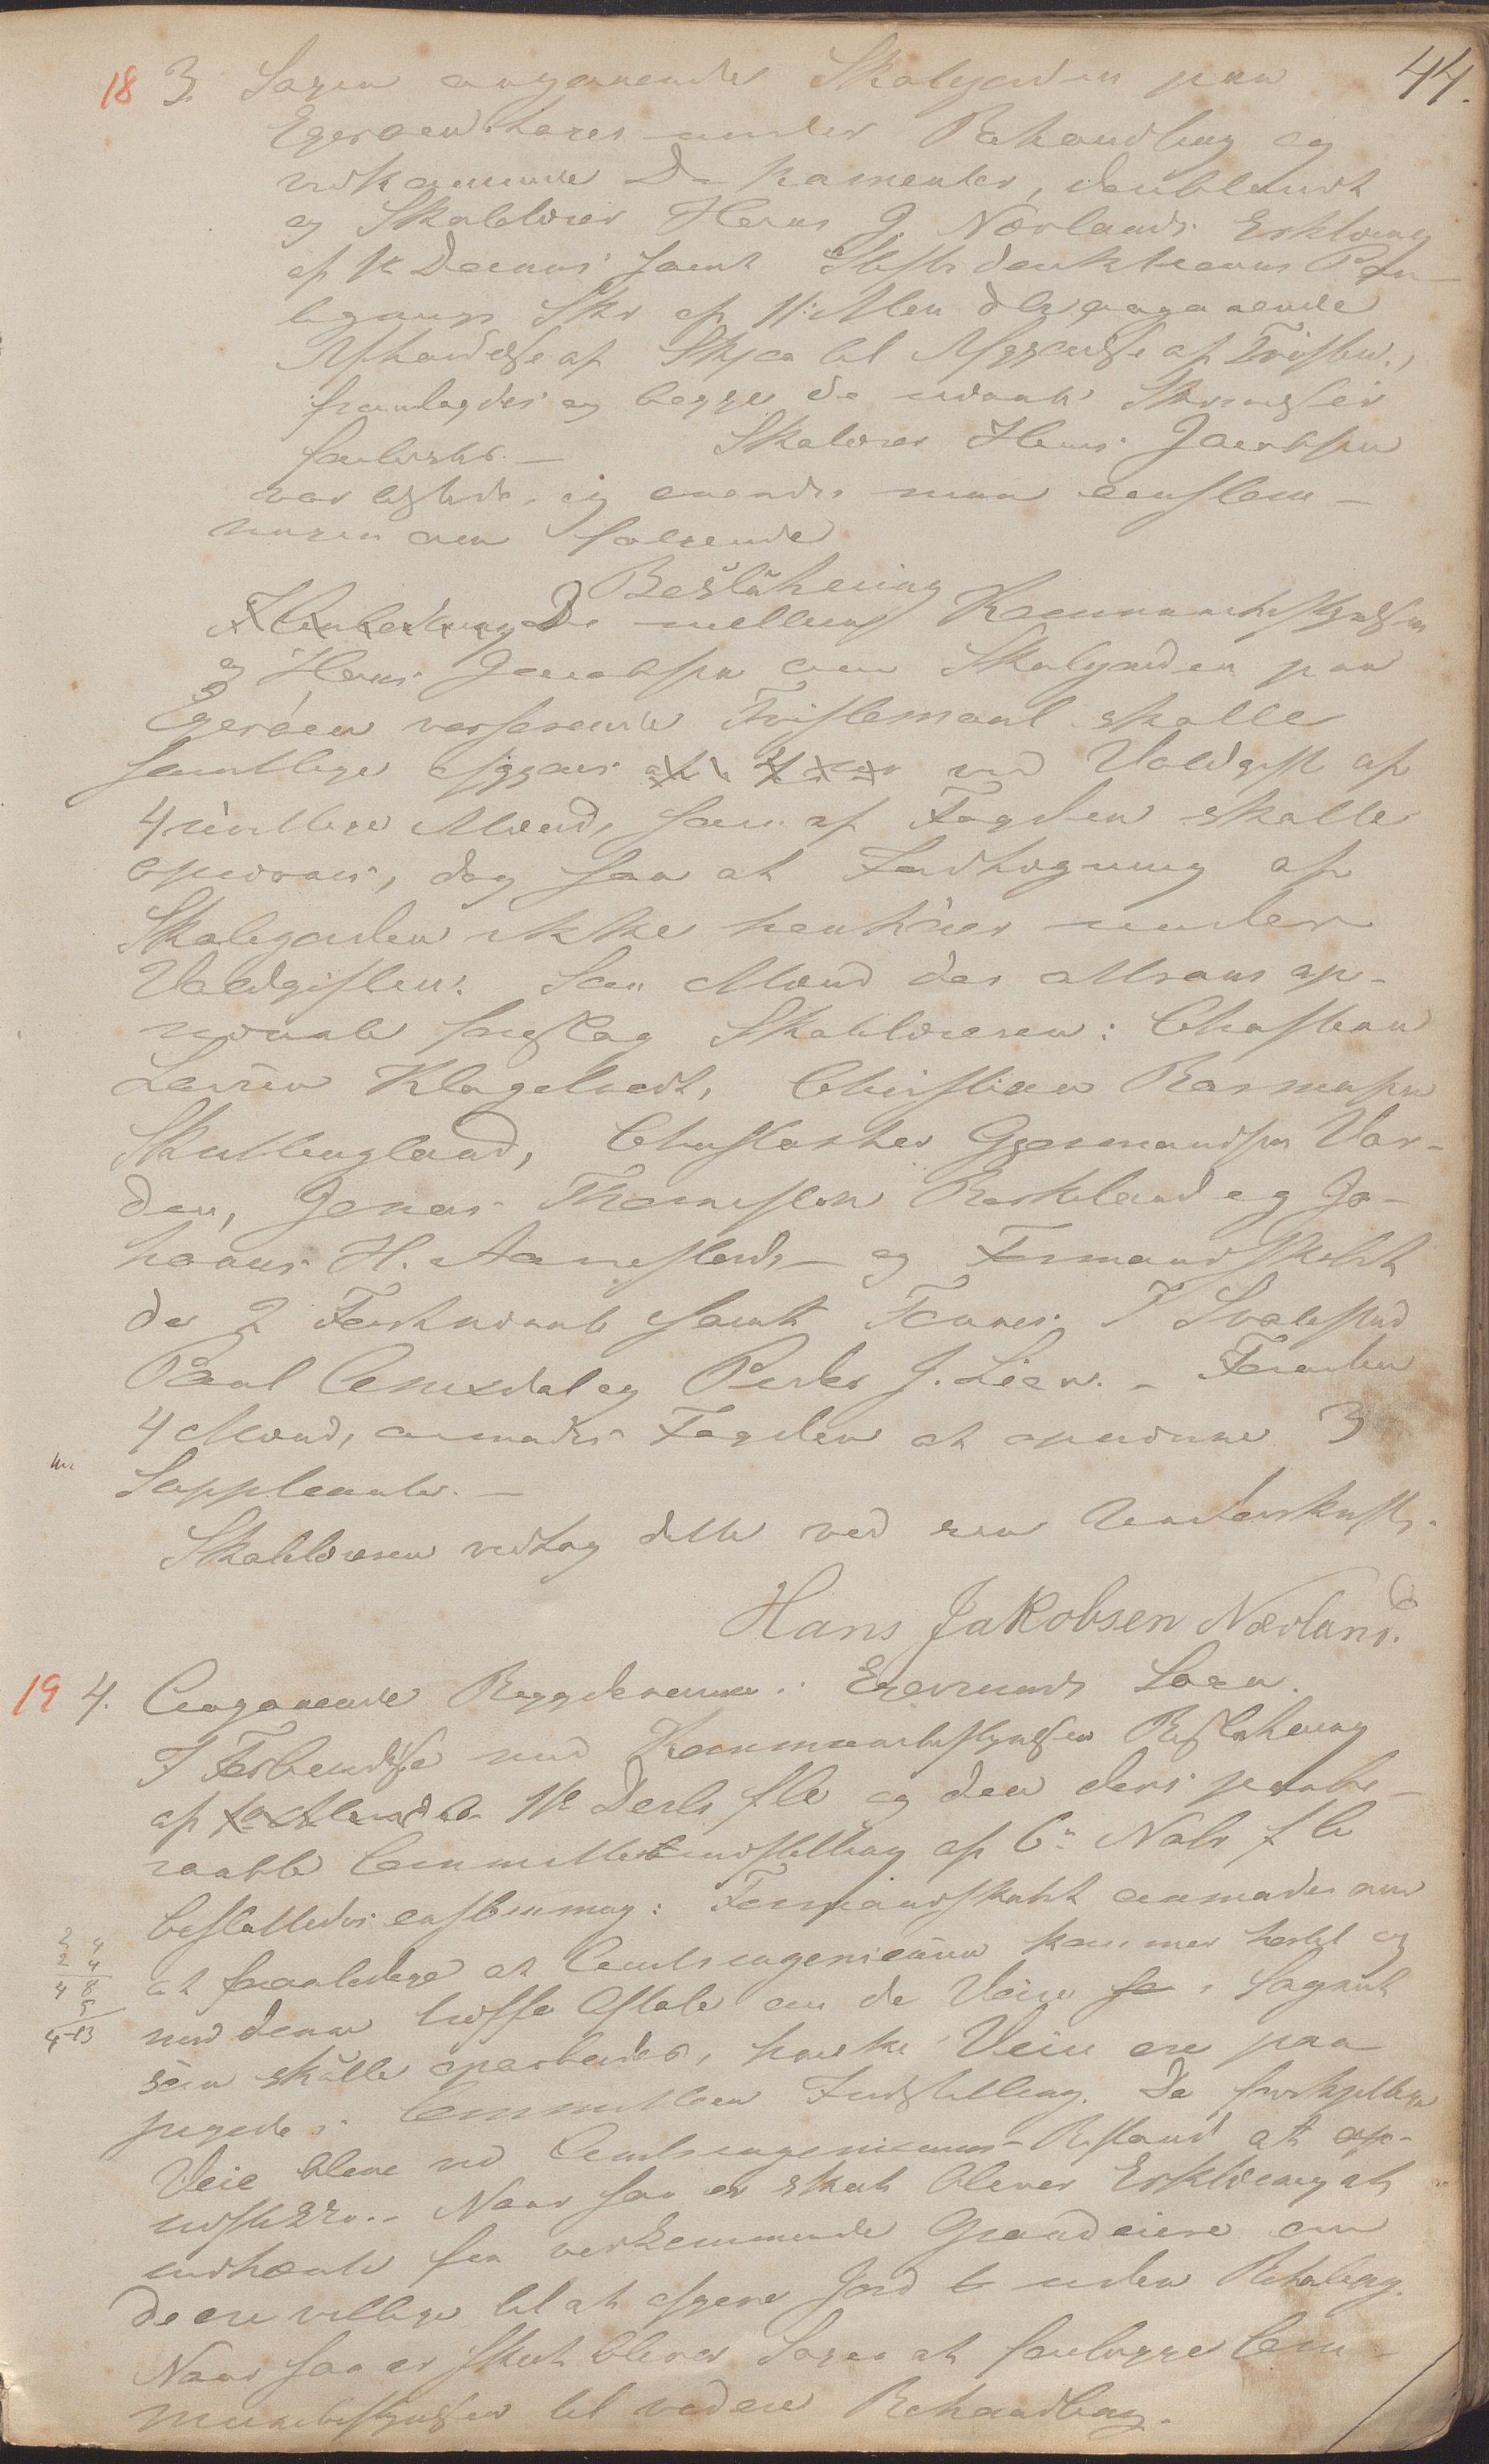 44.
18 3. Sagen angaaende Skolegaarden paa
Egerøen toges under Behandling og
vedkommende Dokumenter, deriblandt
og Skolelærer Hans J. Nærlands Erklæring
af
Afhandelse af til Afgjørelse af Tvisten,
fremlagdes og begge de nævnte Skrivelser
forlæstes. — Skolelærer Hans Jacobsen
var tilstede, og enedes man eenstem-
migen om følgende
Beslutning
De mellem Kommunebestyrelsen
og Hans Jacobsen om Skolegaarden paa
Egerøen verserende Tvistemaal skulle
samtlige afgjøres ved Voldgift af
4 uvillige Mænd, som af Fogden skulle
opnævnes, dog saa at Indhegning af
Skolegaarden ikke henhører under
Voldgiften. Som Mænd der attraaes op-
nævnte foreslog Skolelæreren: Christian
Larsen Klagetvedt, Christian Rasmussen
Skutlengland, Christopher Gjermundsen Var-
den, Jonas Thommesen Birkeland og Jo-
hannes H. Aarrestad — og Formandskabet
de 2 Førstnævnte samt Tønnes T Svalestad
Paul Omdal og Peder J. Lien. — Foruden
4 Mænd, anmodes Fogden at opnævne 3
Suppleanter. —
Skolelæreren vedtog dette ved sin Underskrift.
Hans Jakobsen Nærland.
19 4. Angaaende Bygdeveiene i Egersunds Sogn.
I Forbindelse med Kommunebestyrelsens Beslutning
af 1ste Decbr f. A. og den deri paabe-
raabte Committeeindstilling af 6te Novbr f A
besluttedes enstemmig: Formandskabet anmodes om
at foranledige at Amtsingenieuren kommer hertil og
med denne træffe Aftale om de Veie i Sognet
som skulle oparbeides, hvilke Veie ere paa-
pegede i Committeens Indstilling. De forskjellige
Veie blive ved Amtsingenieurens Bistand at op-
Naar saa er skeet bliver Erklæring at
indhente fra vedkommende Grundeiere om
de ere villige til at afgive Jord uden Betaling.
Naar saa er skeet bliver Sagen at forelægge Com-
munebestyrelsen til videre Behandling.
2 4
2 4
4 8
5
4-13